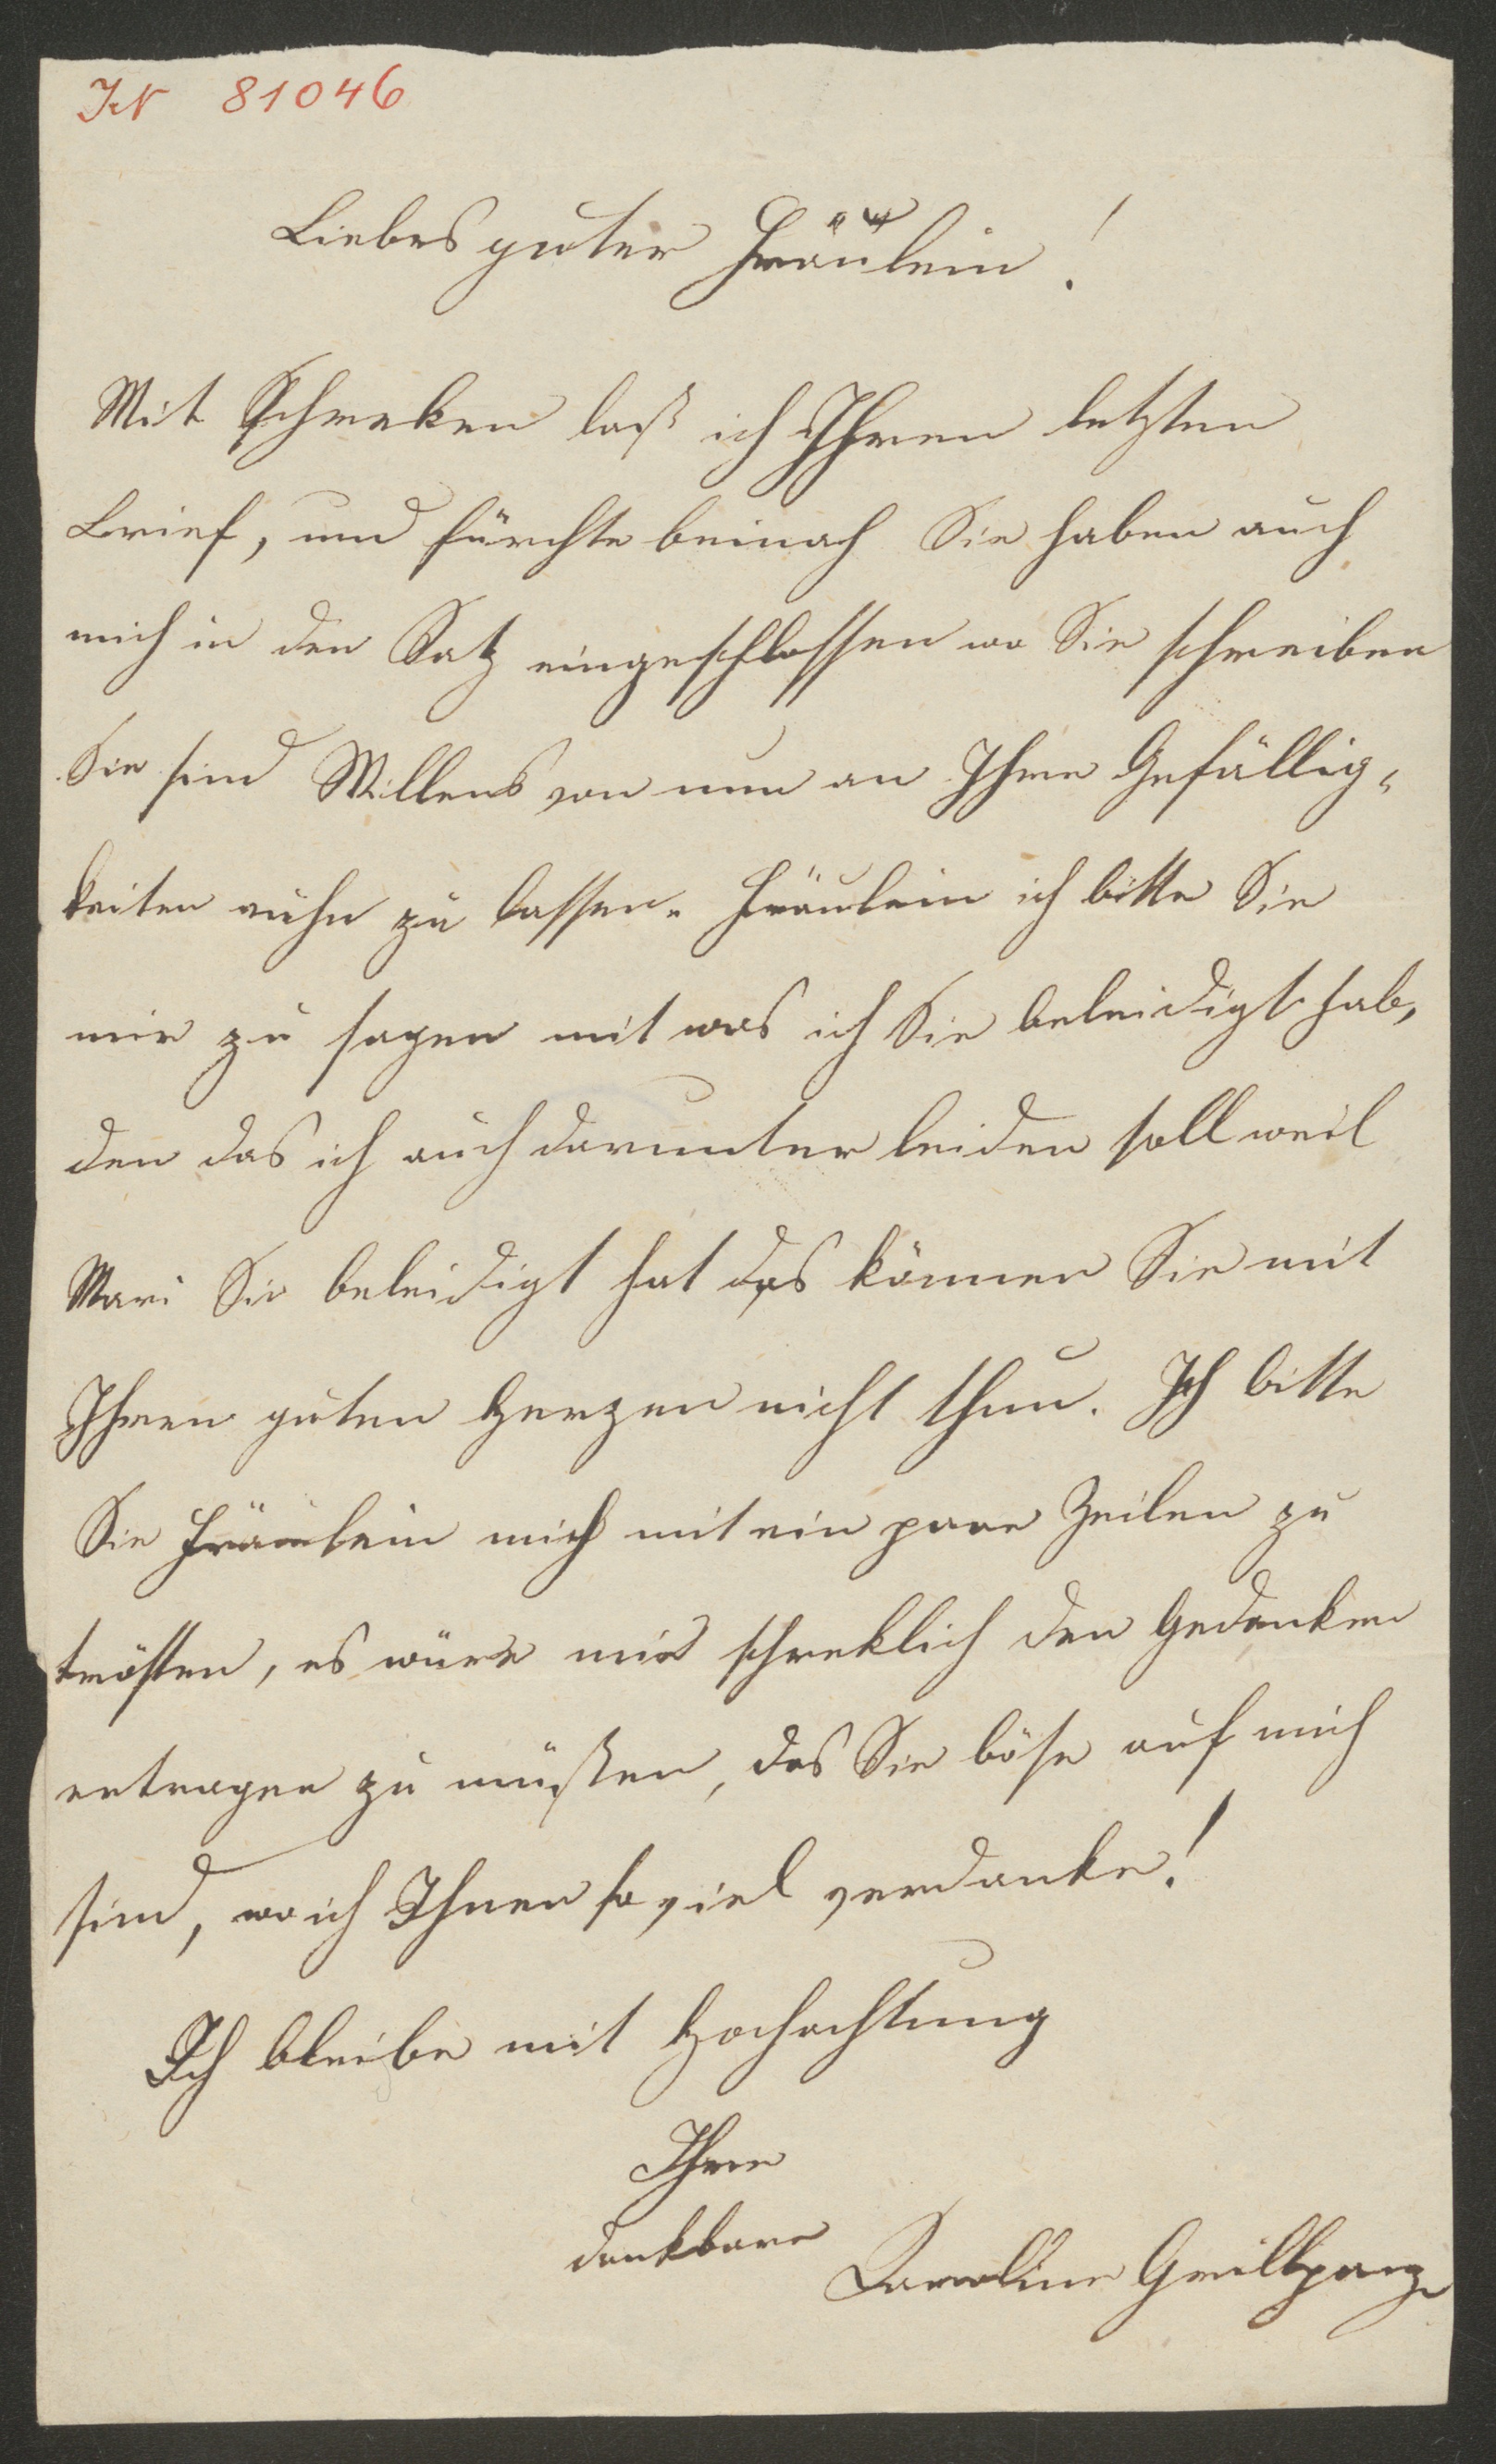 IN 81046
Liebes guter Fräulein!
Mit Schreken laß ich Ihren letzten
Brief, und fürchte beinah Sie haben auch
mich in den Satz eingeschlossen wo Sie schreiben
Sie sind Willens von nun an Ihre Gefällig-
keiten ruhn zu lassen. Fräulein ich bitte Sie
mir zu sagen mit was ich Sie beleidigt hab,
den das ich auch darunter leiden soll weil
Mari Sie beleidigt hat das können Sie mit
Ihren guten Herzen nicht thun. Ich bitte
Sie Fräulein mich mit ein paar Zeilen zu
trösten, es wäre mir schreklich den Gedanken
ertragen zu müßen, das Sie böse auf mich
sind, wo ich Ihnen so viel verdanke!
Ich bleibe mit Hochachtung
Ihre
dankbare
Karoline Grillparz